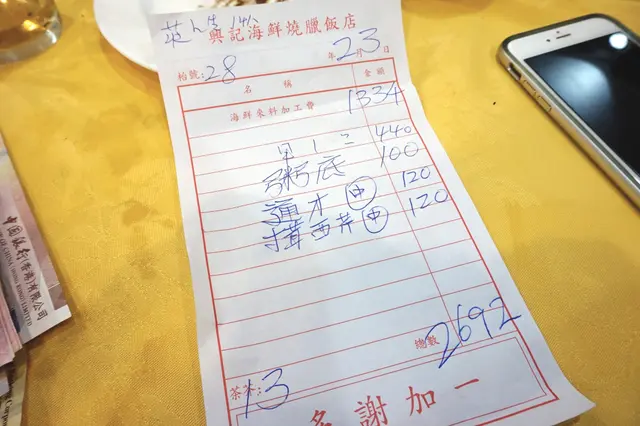 興記海鮮燒臘飯店
枱號:28 年2月3日
名稱 金額
海鮮來料加工費 1334
440
粥底 100
通才 中 120
西芹 中 120
總數 2692
茶芥:13
多謝加一
中國銀行(香港)有限公司